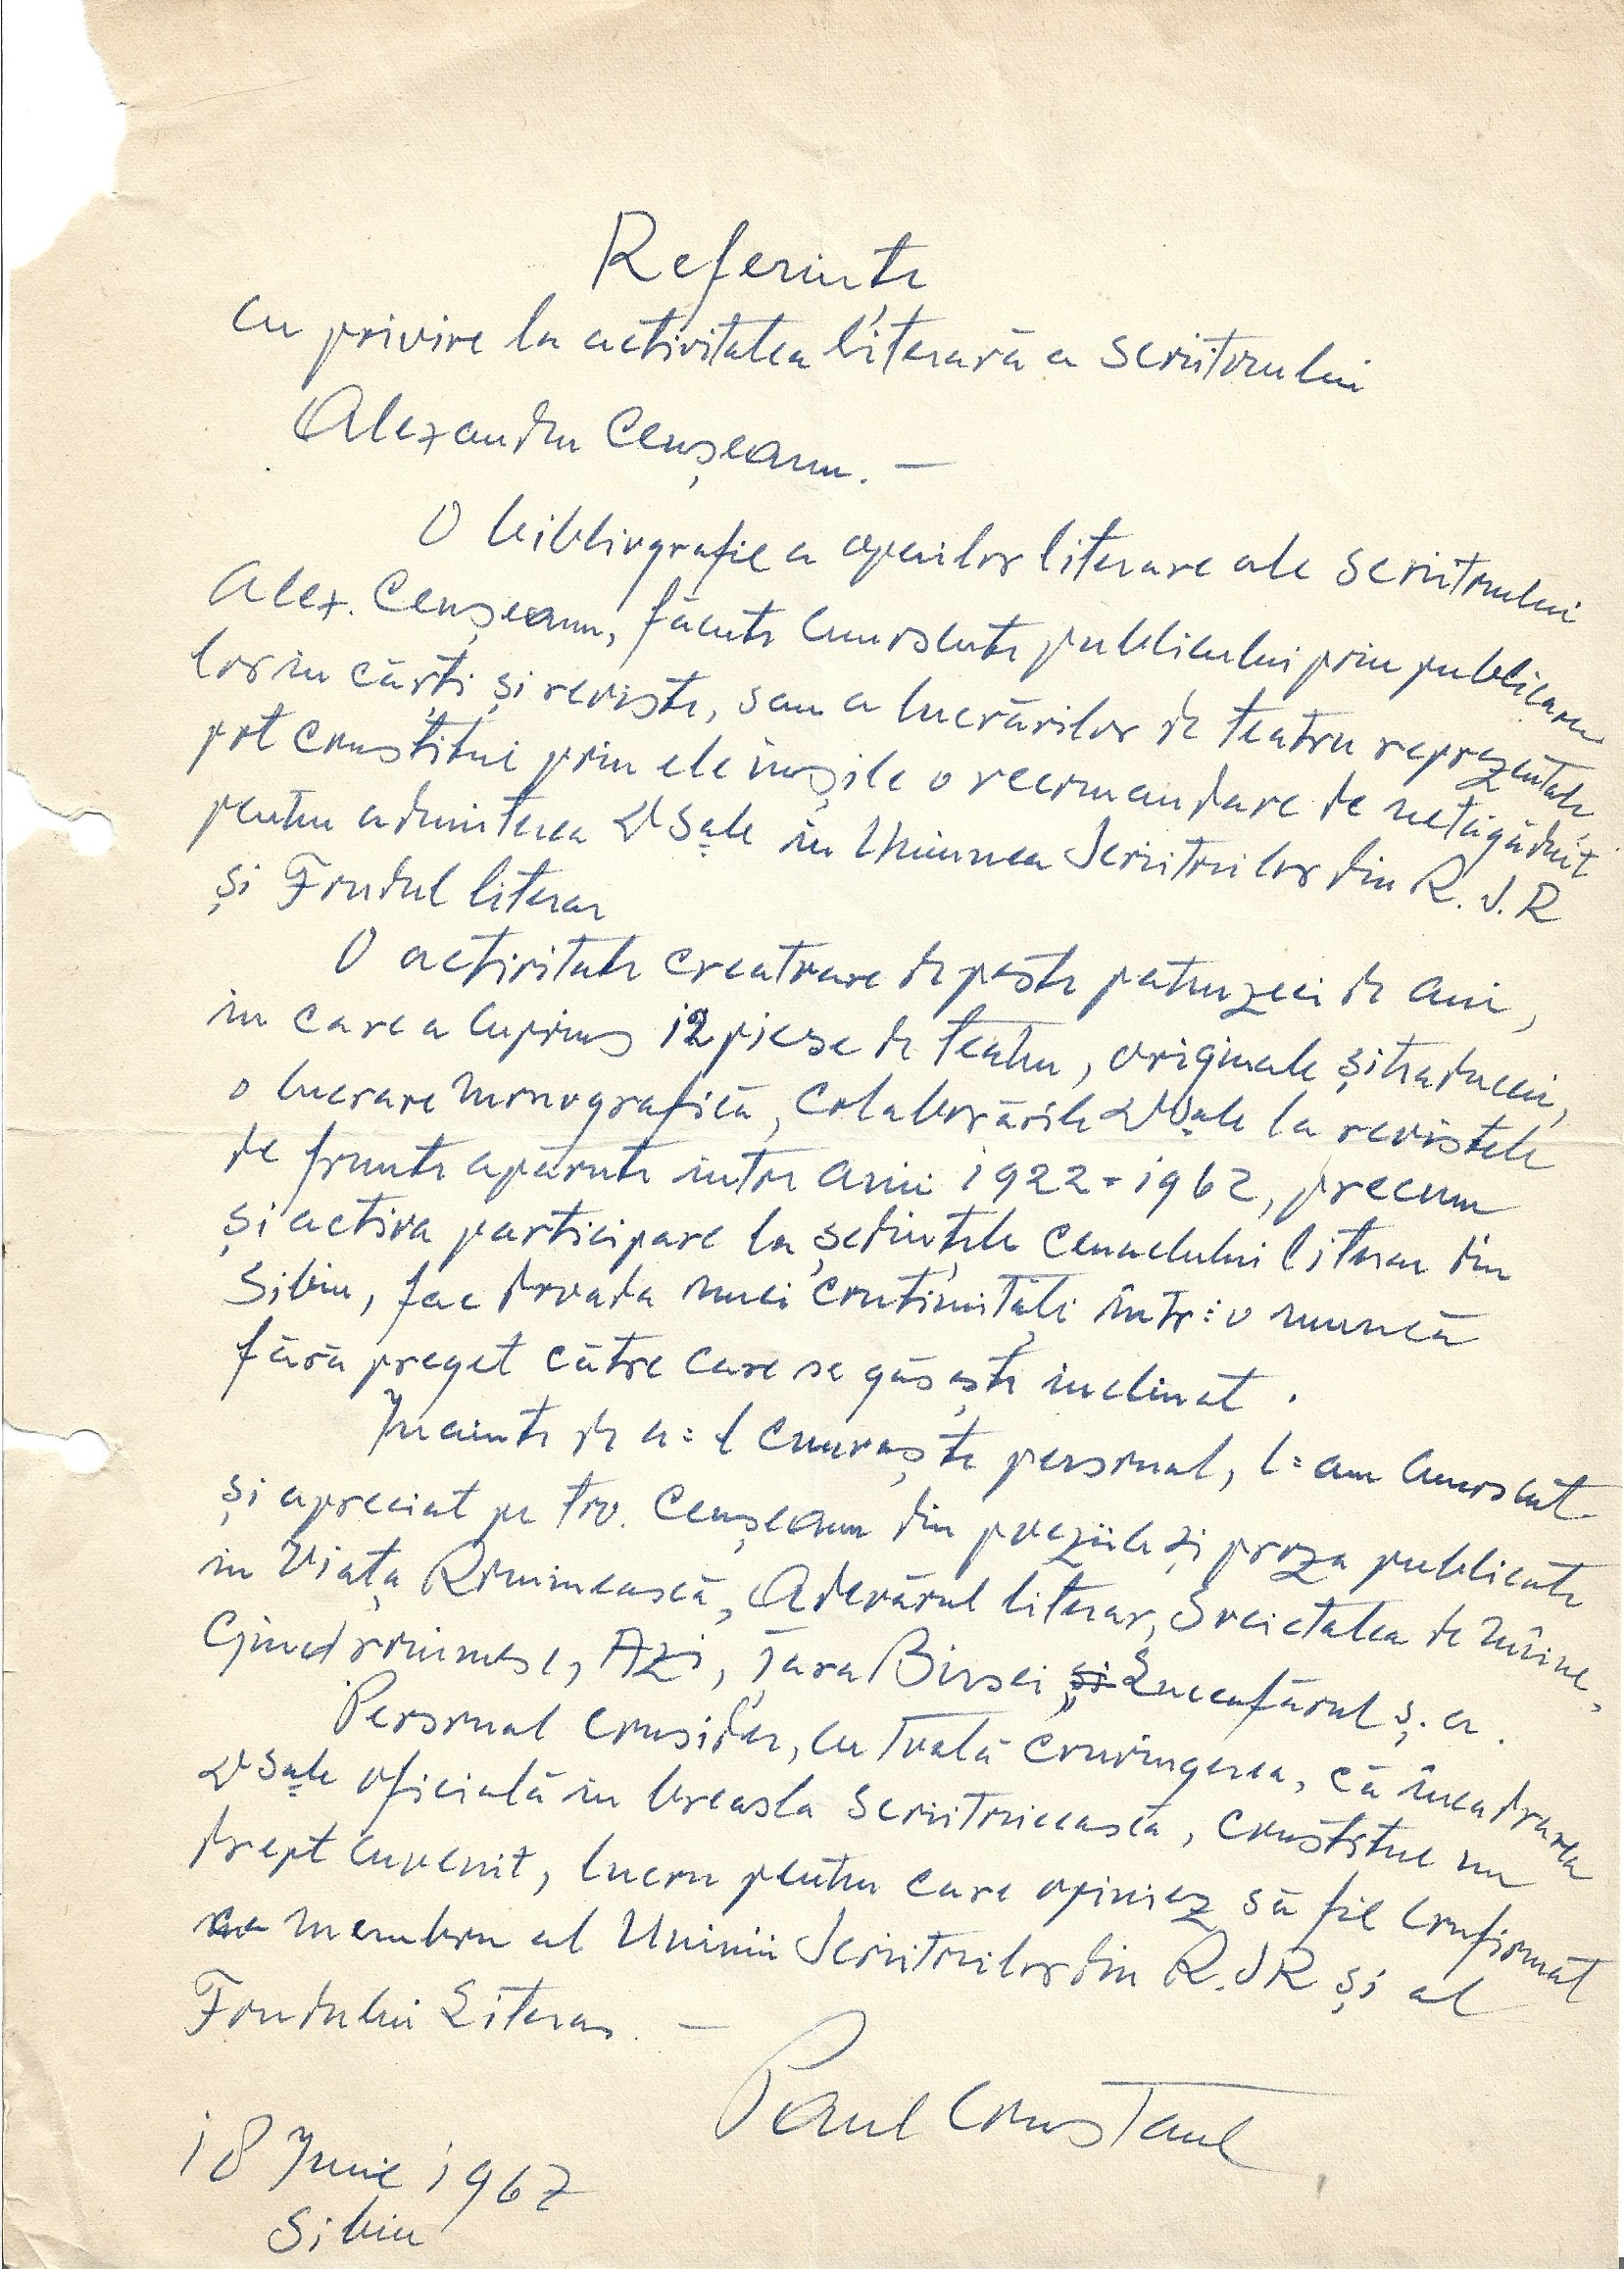 Referințe
cu privire la activitatea literară a scriitorului
Alexandru Ceușeanu. —
O bibliografie a operilor literare ale scriitorului
Alex. Ceușeanu, făcute cunoscute publicului prin publicarea
lor in cărți și reviste, sau a lucrărilor de teatru reprezentate,
pot constitui prin ele însșile o recomandare de netăgăduit
pentru admiterea Dsale in Uniunea Scriitorilor din R.S.R
și Fondul literar
O activitate creatoare de peste patruzeci de ani,
in care a cuprins 12 piese de teatru, originale și traduceri,
o lucrare monografică, colaborările Dsale la revistele
de frunte apărute intre anii 1922-1962, precum
și activa participare la ședințele cenaclului literar din
Sibiu, fac dovada unei continuități într=o muncă
fără preget către care se găsește inclinat.
Inainte de a=l cunoaște personal, l=am cunoscut
și apreciat pe tov. Ceușeanu din poeziile și proza publicate
in Viața Romînească, Adevărul literar, Societatea de mîine,
Gînd romînesc, Azi, Țara Bîrsei, și Luceafărul ș.a.
Personal consider, cu toată convingerea, că încadrarea
Dsale oficială in breasla scriitoricească, constitue un
drept cuvenit, lucru pentru care opiniez să fie confirmat
ca membru al Uniunii Scriitorilor din R.S.R și al
Fondului Literar. —
Paul Constant
18 Iunie 1967
Sibiu